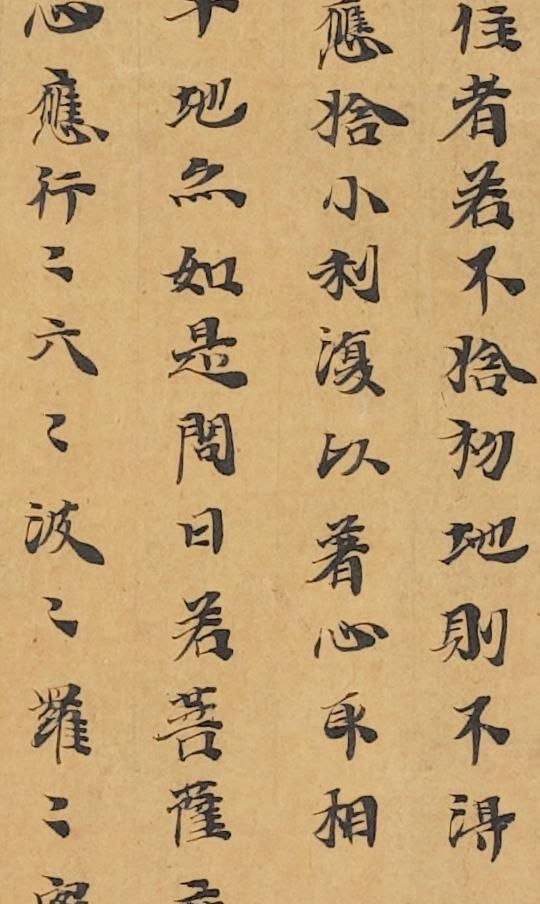 住者若不捨初地則不得
應捨小利復以著心取相
地亦如是問曰若菩薩
心應行〻六〻波〻羅〻